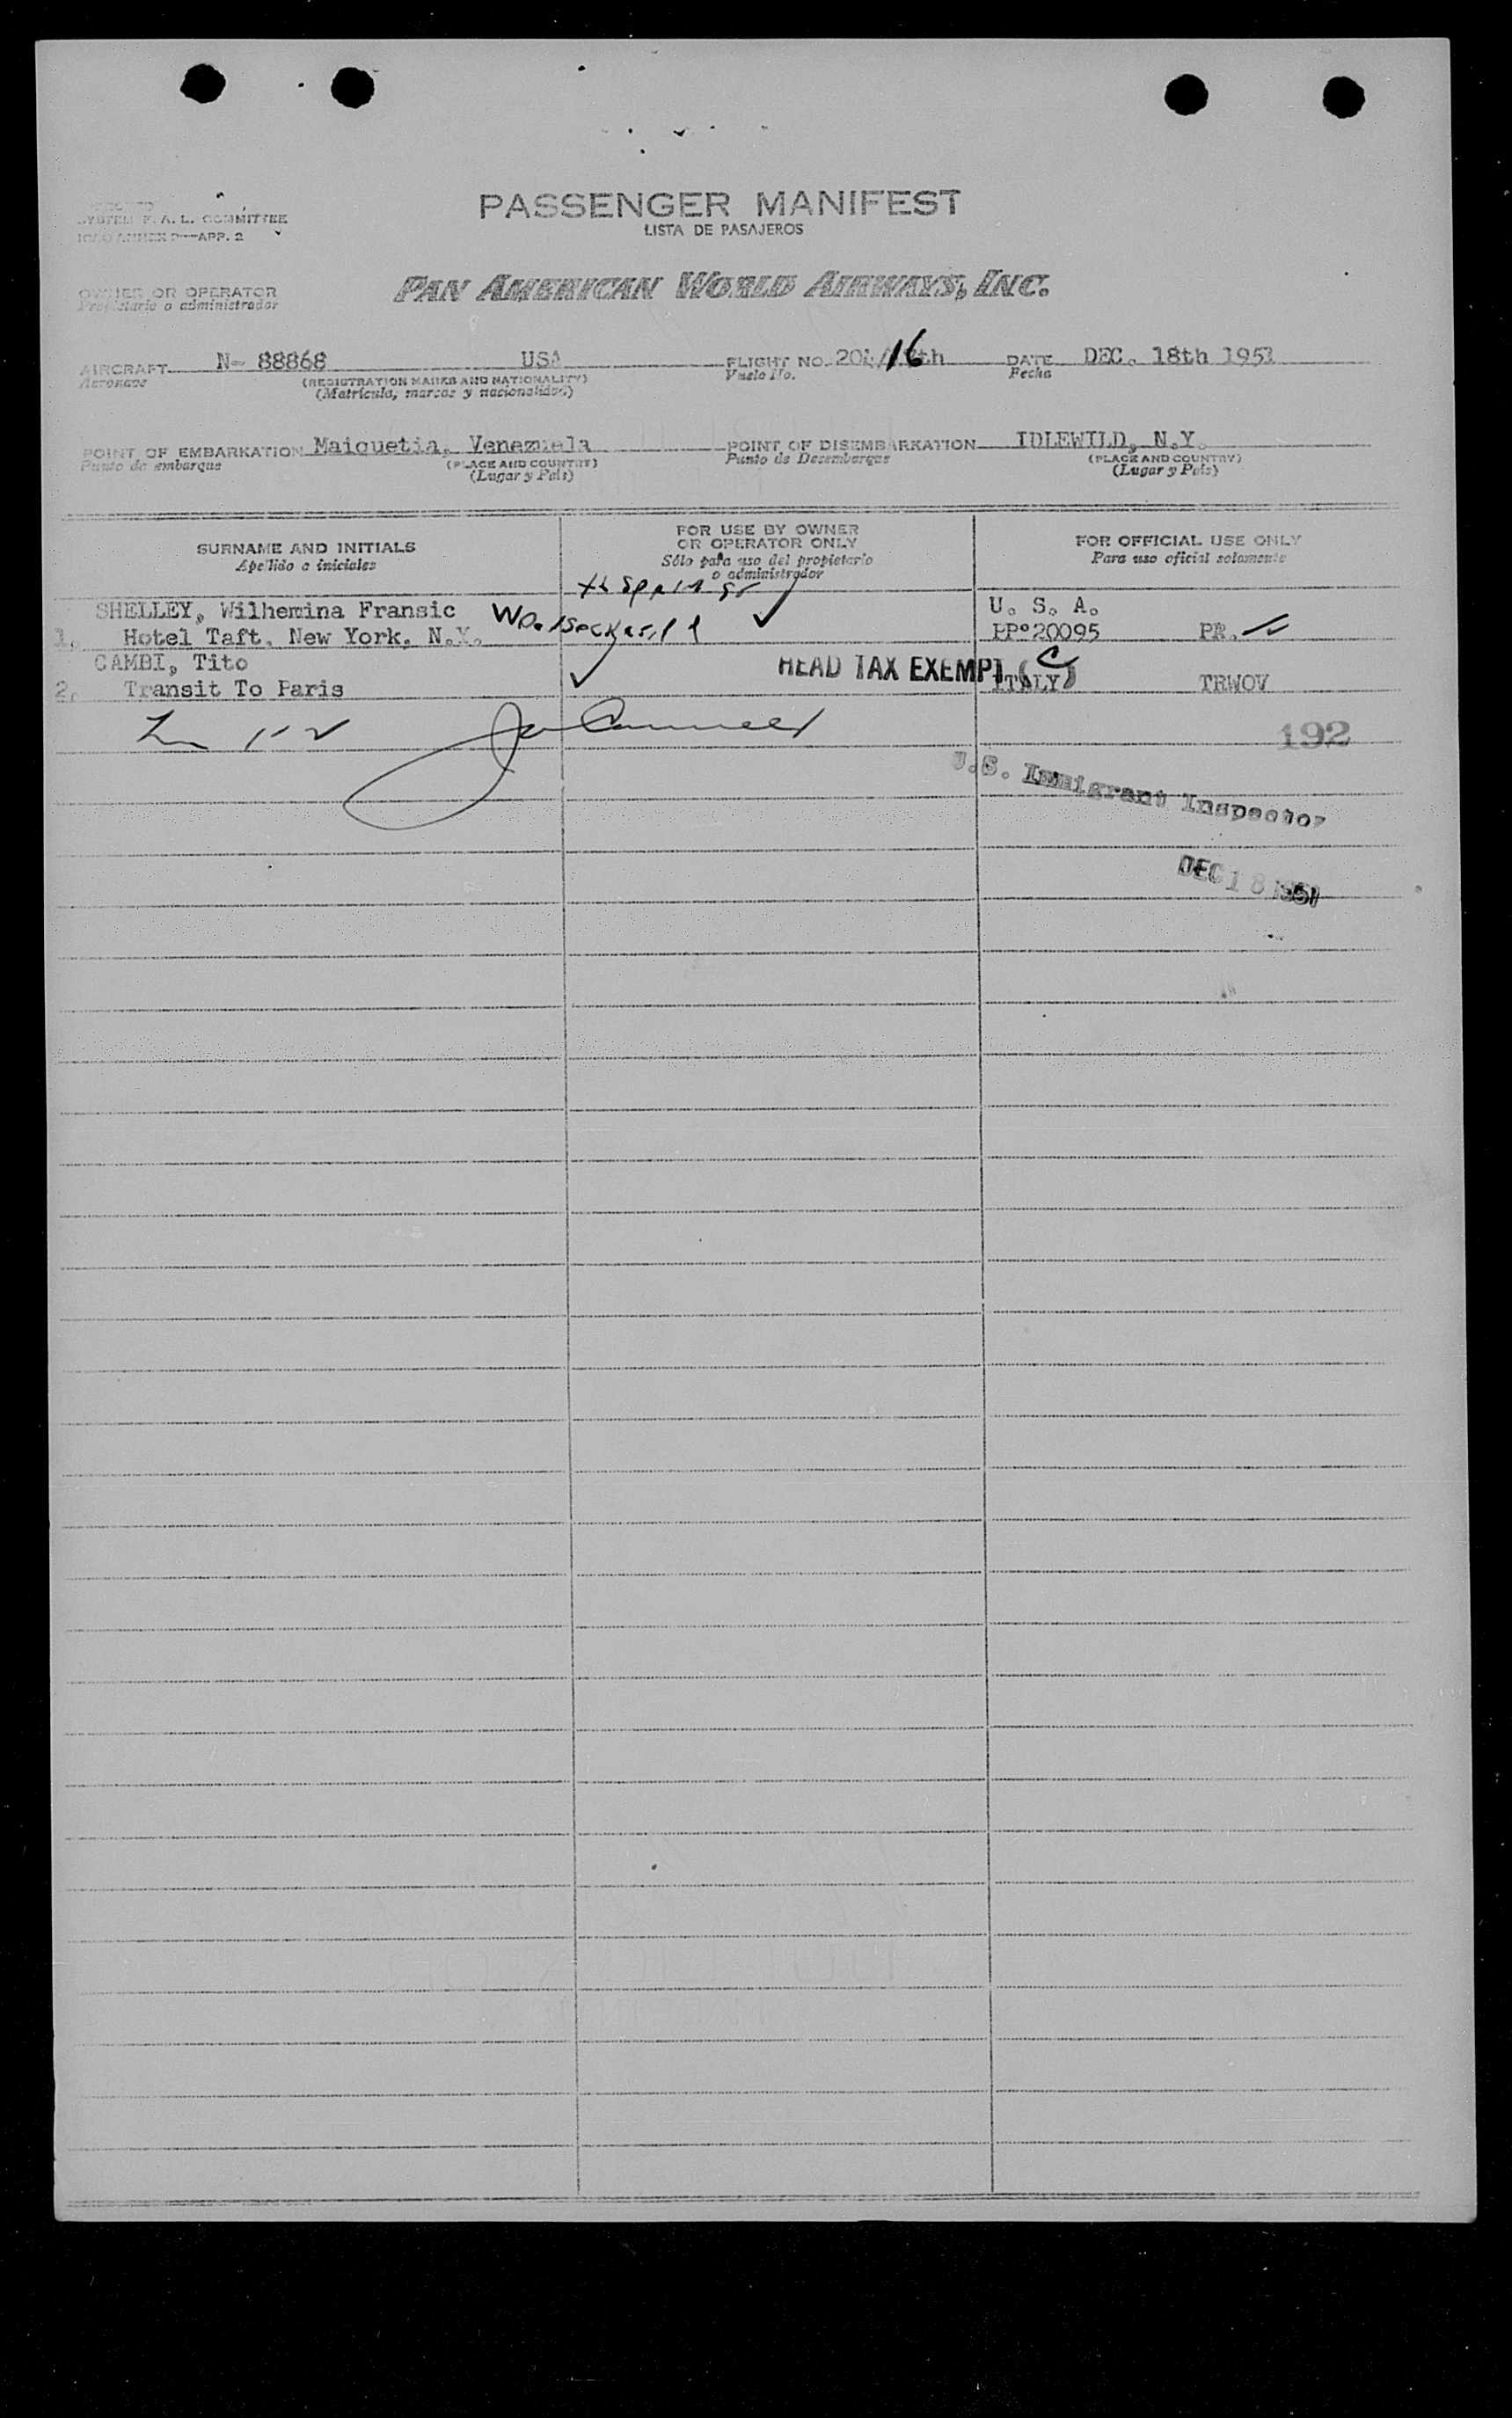 SYSTEM F. A. L. COMMITTEE
ICAO ANNEX 9—APP. 2
PASSENGER MANIFEST
LISTA DE PASAJEROS
OWNER OR OPERATOR
Propietario o administrador
PAN AMERICAN WORLD AIRWAYS, INC.
AIRCRAFT N- 88868 USA FLIGHT NO. 204/16th DATE DEC. 18th 1951
Aeronave (REGISTRATION MARKS AND NATIONALITY) Vuelo No. Fecha
(Matrícula, marcas y nacionalidad)
POINT OF EMBARKATION Maiquetia, Venezuela POINT OF DISEMBARKATION IDLEWILD, N.Y.
Punto de embarque (PLACE AND COUNTRY) Punto de Desembarque (PLACE AND COUNTRY)
(Lugar y País) (Lugar y País)
SURNAME AND INITIALS
Apellido e iniciales
FOR USE BY OWNER
OR OPERATOR ONLY
Sólo para uso del propietario
o administrador
FOR OFFICIAL USE ONLY
Para uso oficial solamente
SHELLEY, Wilhemina Fransic U. S. A.
1. Hotel Taft, New York, N.Y. PP°20095 PR.
CAMBI, Tito HEAD TAX EXEMPT (C)
2. Transit To Paris ITALY TRWOV
192
U.S. Immigrant Inspector
DEC 18 1951